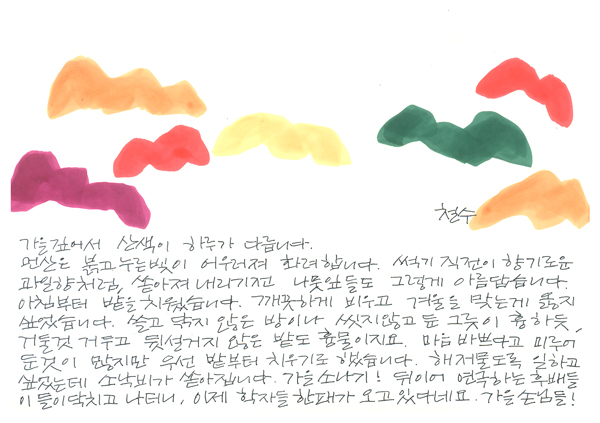 철수
가을 깊어서 산색이 하루가 다릅니다.
먼산은 붉고 누른 빛이 어우러져 화려합니다. 썩기 직전이 향기로운
과일향처럼, 쏟아져 내리기전 나뭇잎들도 그렇게 아름답습니다.
아침부터 밭을 치웠습니다. 깨끗하게 비우고 겨울을 맞는게 옳지
싶었습니다. 쓸고 닦지 않은 방이나 씻지않고 둔 그릇이 흉하듯,
거둘것 거두고 뒷설거지 않은 밭도 흉물이지요. 마음 바쁘다고 미루어
둔것이 많지만 우선 밭부터 치우기로 했습니다. 해저물도록 일하고
싶었는데 소낙비가 쏟아집니다. 가을 소나기! 뒤이어 연극하는 후배들
이 들이닥치고 나더니, 이제 학자들 한패가 오고있다네요. 가을손님들!